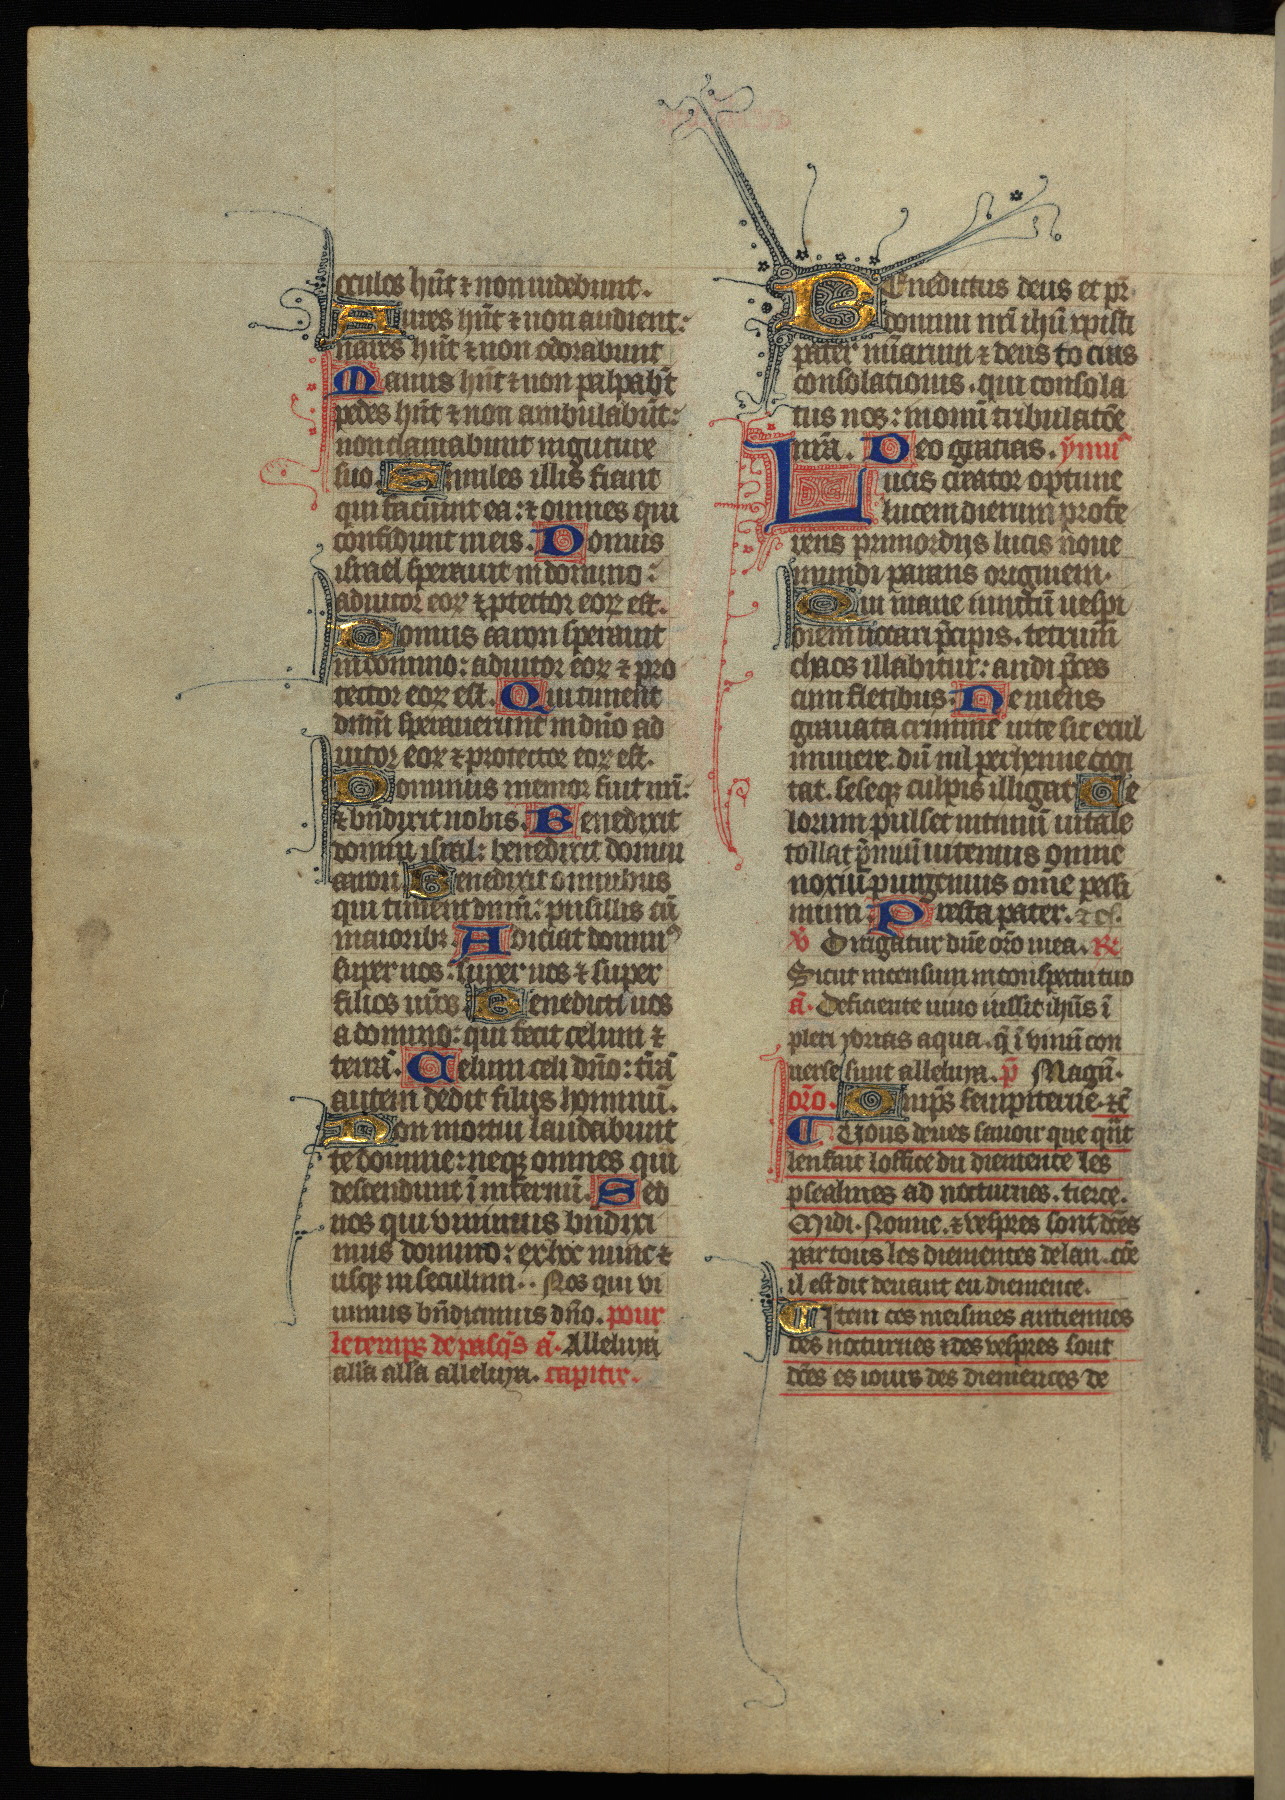 oculos hn̄t ⁊ non uidebunt.
Aures hn̄t ⁊ non audient:
nares hn̄t ⁊ non odorabunt
Manus hn̄t ⁊ non palpab̄t
pedes hn̄t ⁊ non ambulabūt:
non clamabunt in guture
suo. Similes illis fiant
qui faciunt ea: ⁊ omnes qui
confidunt in eis. Domus
israel sperauit in domino:
adiutor eoꝝ ⁊ ꝓtector eoꝝ est.
Domus aaron sperauit
in domino: adiutor eoꝝ ⁊ pro
tector eoꝝ est. Qui timent
dn̄m sperauerunt in dn̄o ad
iutor eoꝝ ⁊ protector eoꝝ est.
Dominus memor fuit nr̄i:
⁊ bn̄dixit nobis. Benedixit
domui isral: benedixit domui
aaron. Benedixit omnibus
qui timent dn̄m: pusillis cū
maioribꝫ. Adiciat dominꝰ
super uos: super uos ⁊ super
filios ur̄os. Benedicti uos
a domino: qui fecit celum ⁊
terrā. Celum celi dn̄o: t̄rā
autem dedit filiis hominū.
Non mortui laudabunt
te domine: neqꝫ omnes qui
descendunt ī infernū. Sed
nos qui viuimus bn̄dixi
mus domino: ex hoc nunc ⁊
usqꝫ in seculum.. Nos qui vi
uimus bn̄dicimus dn̄o. pour
le temps de pasq̄s ā. Alleluya
all'a all'a alleluya. capitle.
Benedictus deus et pr̄
domini nr̄i ihū xpisti
pater mīarum ⁊ deus tocius
consolationis. qui consola
tus nos: in omī tribulatōe
nr̄a. Deo gratias. ymn̄
Lucis creator optime
lucem dierum profe
rens primordijs lucis noue
mundi parans originem.
Qui mane iunctū uespi
diem uocari p̄cipis. tetrum̄
chaos illabitur: audi p̄ces
cum fletibus. Ne mens
grauata crimine uite sit exul
munere. dū nil perhenne cogi
tat. seseqꝫ culpis illigat. Ce
lorum pulset intimū uitale
tollat p̄miū uitemus omne
noxiū purgemus om̄e pessi
mum. Presta pater. ⁊ cs.
v̄ Dirigatur dn̄e orō mea. R.
Sicut incensum in conspectu tuo
ā. Deficiente uino iussit ihūs ī
pleri ydrias aqua. q̄ ī vinū con
uerse sunt alleluya. p̄ Magn̄.
orō. Omp̄s sempiterne. ⁊c̄
¶ Vous deues sauoir que qn̄t
len fait loffice du diemence les
psealmes ad nocturnes. tierce.
Midi. Nonne. ⁊ vespres sont dc̄es
par tous les diemences de lan. cōe
il est dit deuant eu diemence.
¶ Item ces meismes antiennes
des nocturnes ⁊ des vespres sont
dc̄es es iours des diemences de